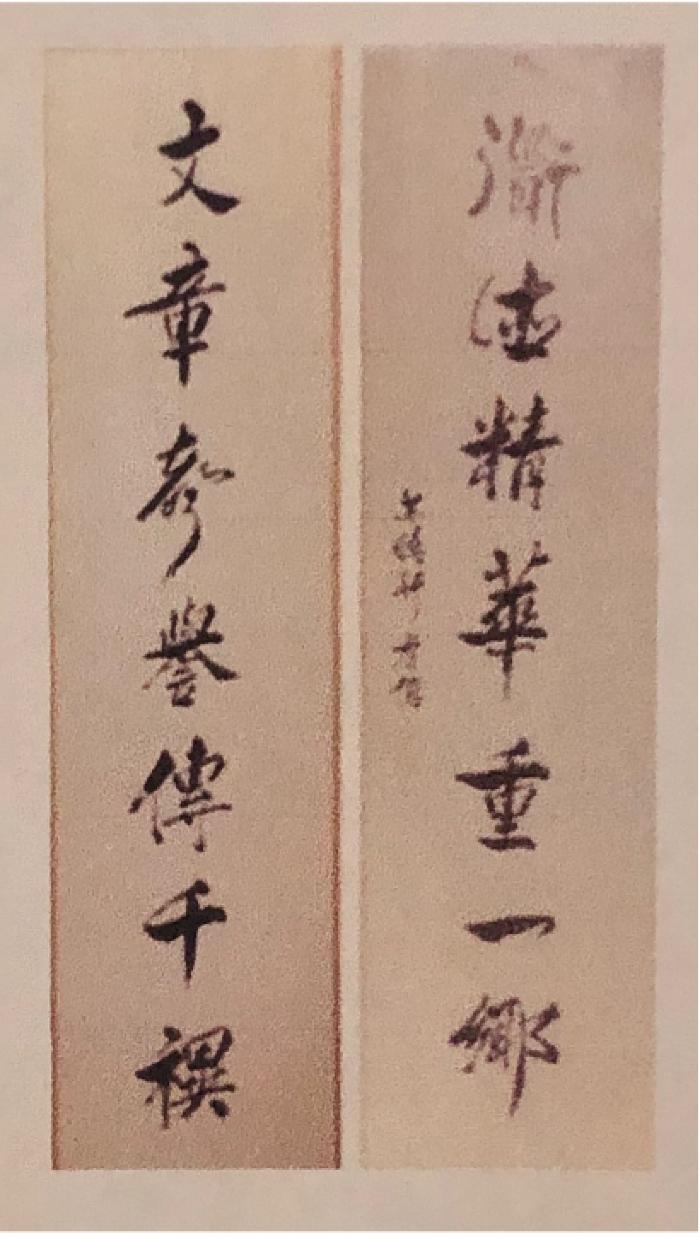 衟德精華重一鄉
文章聲譽傳千禩